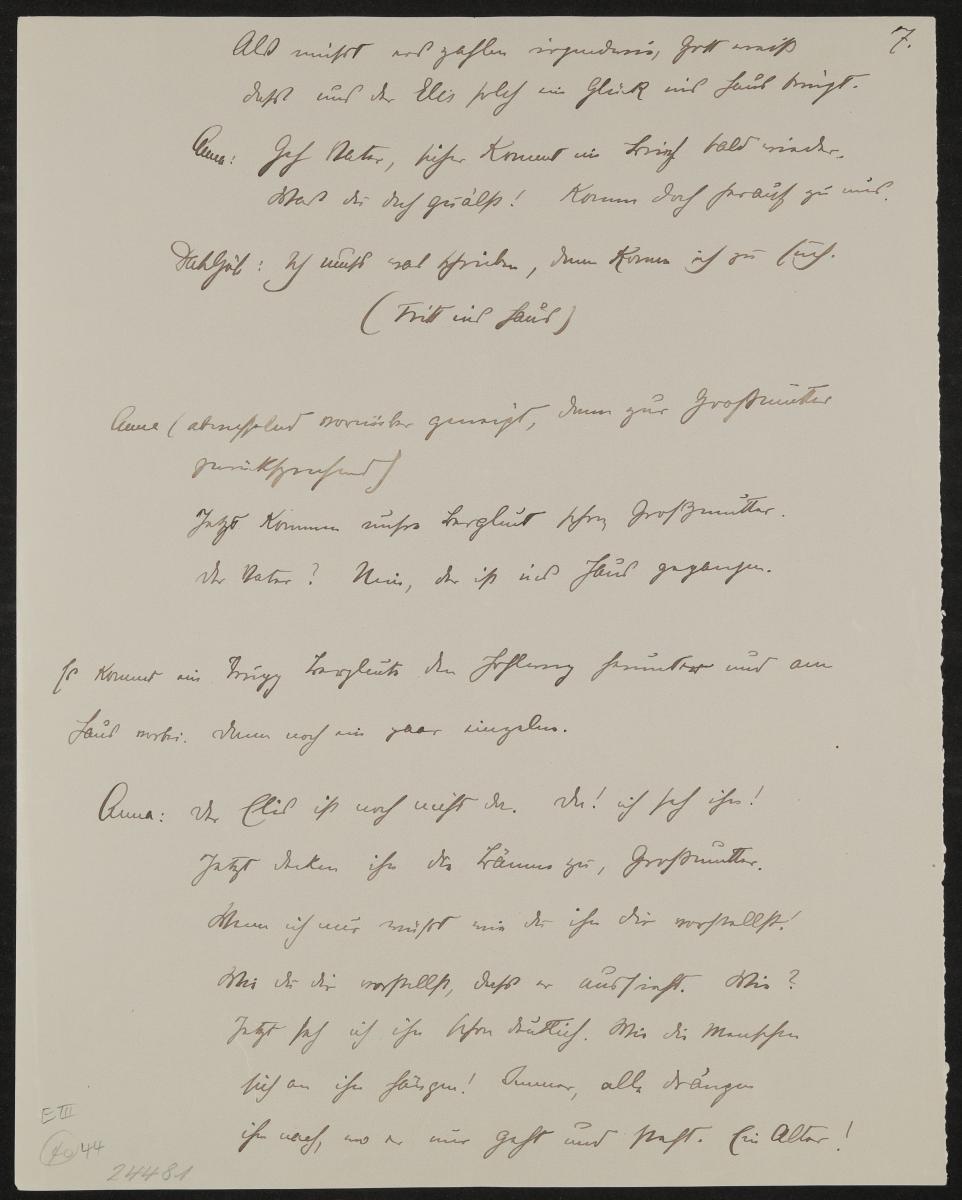 7.
Als müsst was zahlen irgendwie, Gott weiß
dafür uns der Elis solch ein Glück ins Haus bringt.
Anna: Geh Vater, sicher kommt ein Brief bald wieder.
Was du dich quälst! Komm doch herauf zu uns.
Dahlsjö: Ich muss was schreiben, dann komm ich zu Euch.
(Tritt ins Haus)
Anna (abwechselnd vorüber geneigt, dann zur Großmutter
zurücksprechend)
Jetzt kommen unsre Bergleut schon Großmutter.
Der Vater? Nein, der ist ins Haus gegangen.
Es kommt ein Trupp Bergleute den Hohlweg herunter und am
Haus vorbei. Dann noch ein paar einzelne.
Anna: Der Elis ist noch nicht da. Da! ich seh ihn!
Jetzt decken ihn die Bäume zu, Großmutter.
Wenn ich nur wüsst wie du ihn dir vorstellst!
Wie du dir vorstellst, dass er aussieht. Wie?
Jetzt seh ich ihn schon deutlich. Wie die Menschen
sich an ihn hängen! Immer, alle drängen
ihm nach, wo er nur geht und steht. Ein Alter!
E III
44
24481